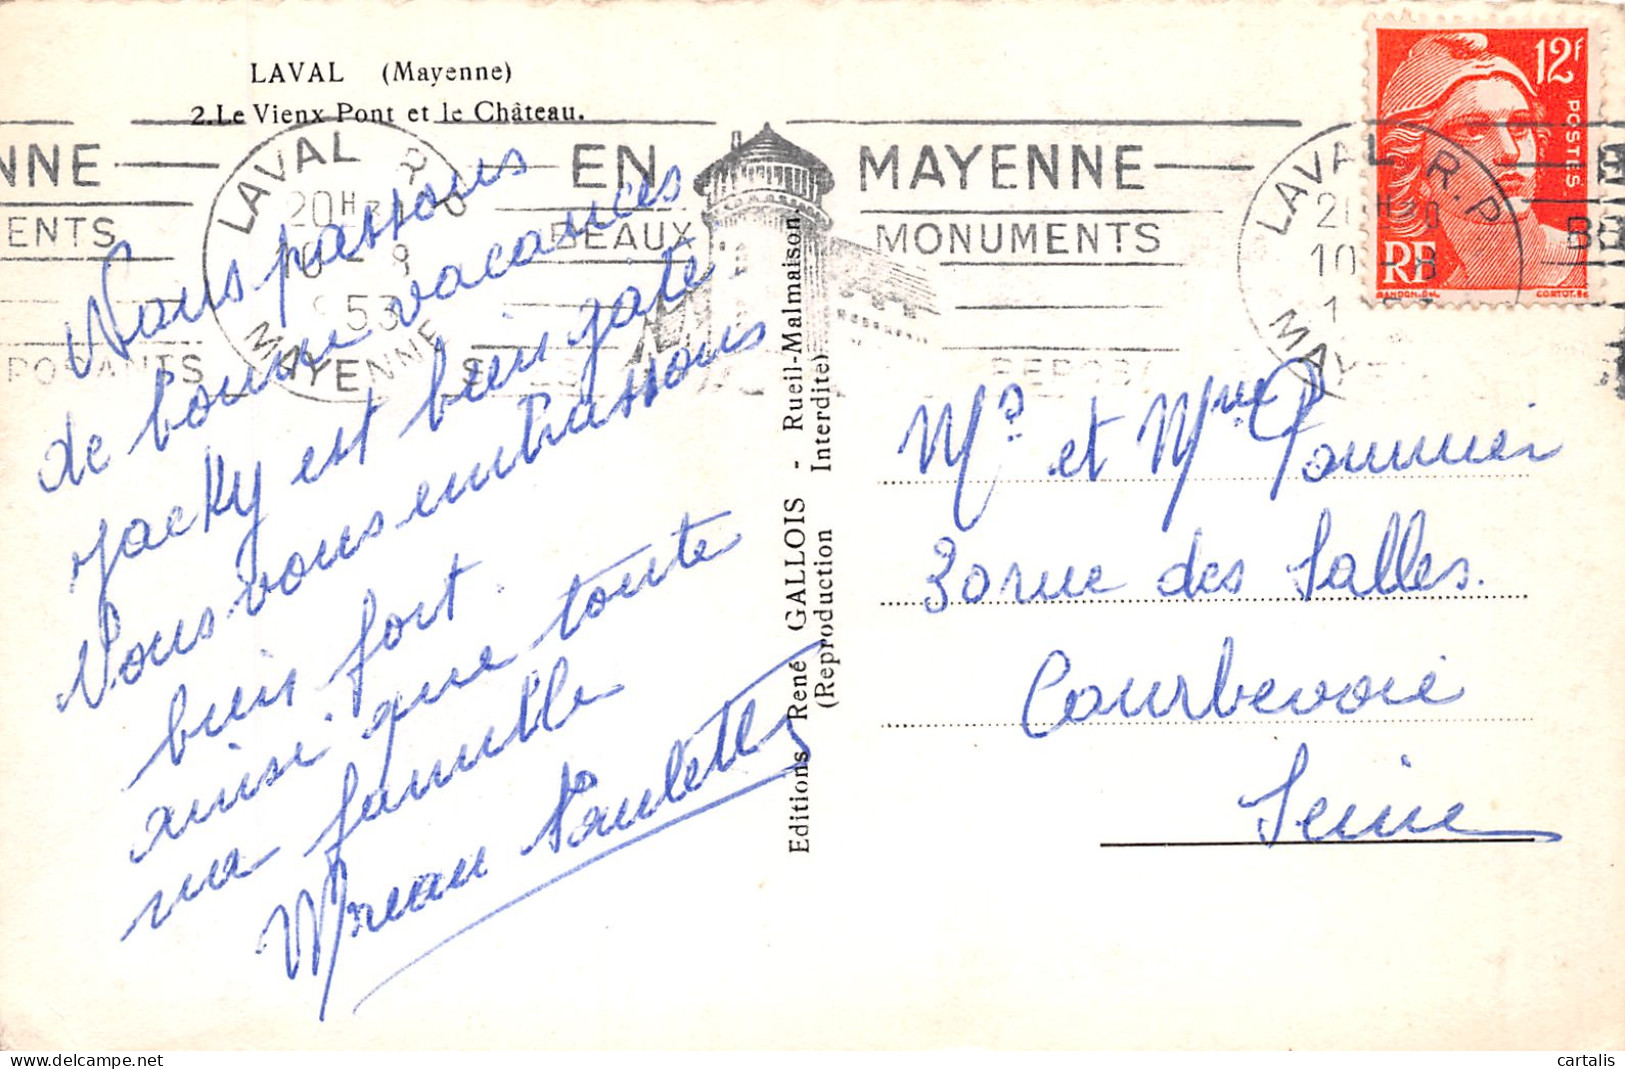 LAVAL (Mayenne)
2. Le Vieux Pont et le Château.
NNE
ENTS
POSANTS
LAVAL R.P
20H
10 - 8
53
MAYENNE
EN MAYENNE
BEAUX MONUMENTS
LAVAL R.P
10 - 8
12F
POSTES
RF
GANDON.DEL.
CORTOT.SC
Nous passons
de bonne vacances
Jacky est bien gaté
Nous vous embrassons
bien fort.
ainsi que toute
ma famille
Paulette
Editions René GALLOIS - Rueil-Malmaison
(Reproduction Interdite)
Mr et Mme Pommier
30 rue des Salles.
Courbevoie
Seine
cartalis